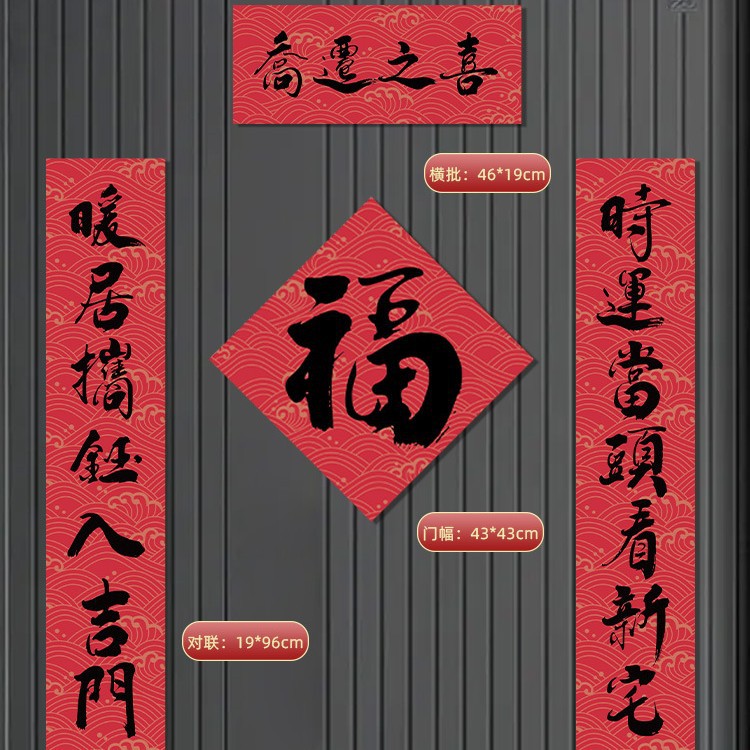 喬遷之喜
横批：46*19cm
時運當頭看新宅
福
暖居攜鈺入吉門
门幅：43*43cm
对联：19*96cm